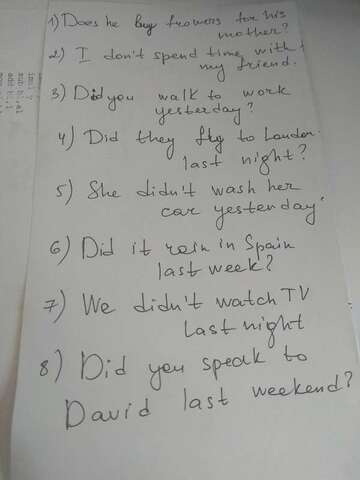 1) Does he buy frowers for his
mother?
2) I don't spend time with
my friend.
3) Did you walk to work
yesterday?
4) Did they fly to London
last night?
5) She didn't wash her
car yesterday.
6) Did it rain in Spain
last week?
7) We didn't watch TV
last night
8) Did you speak to
David last weekend?